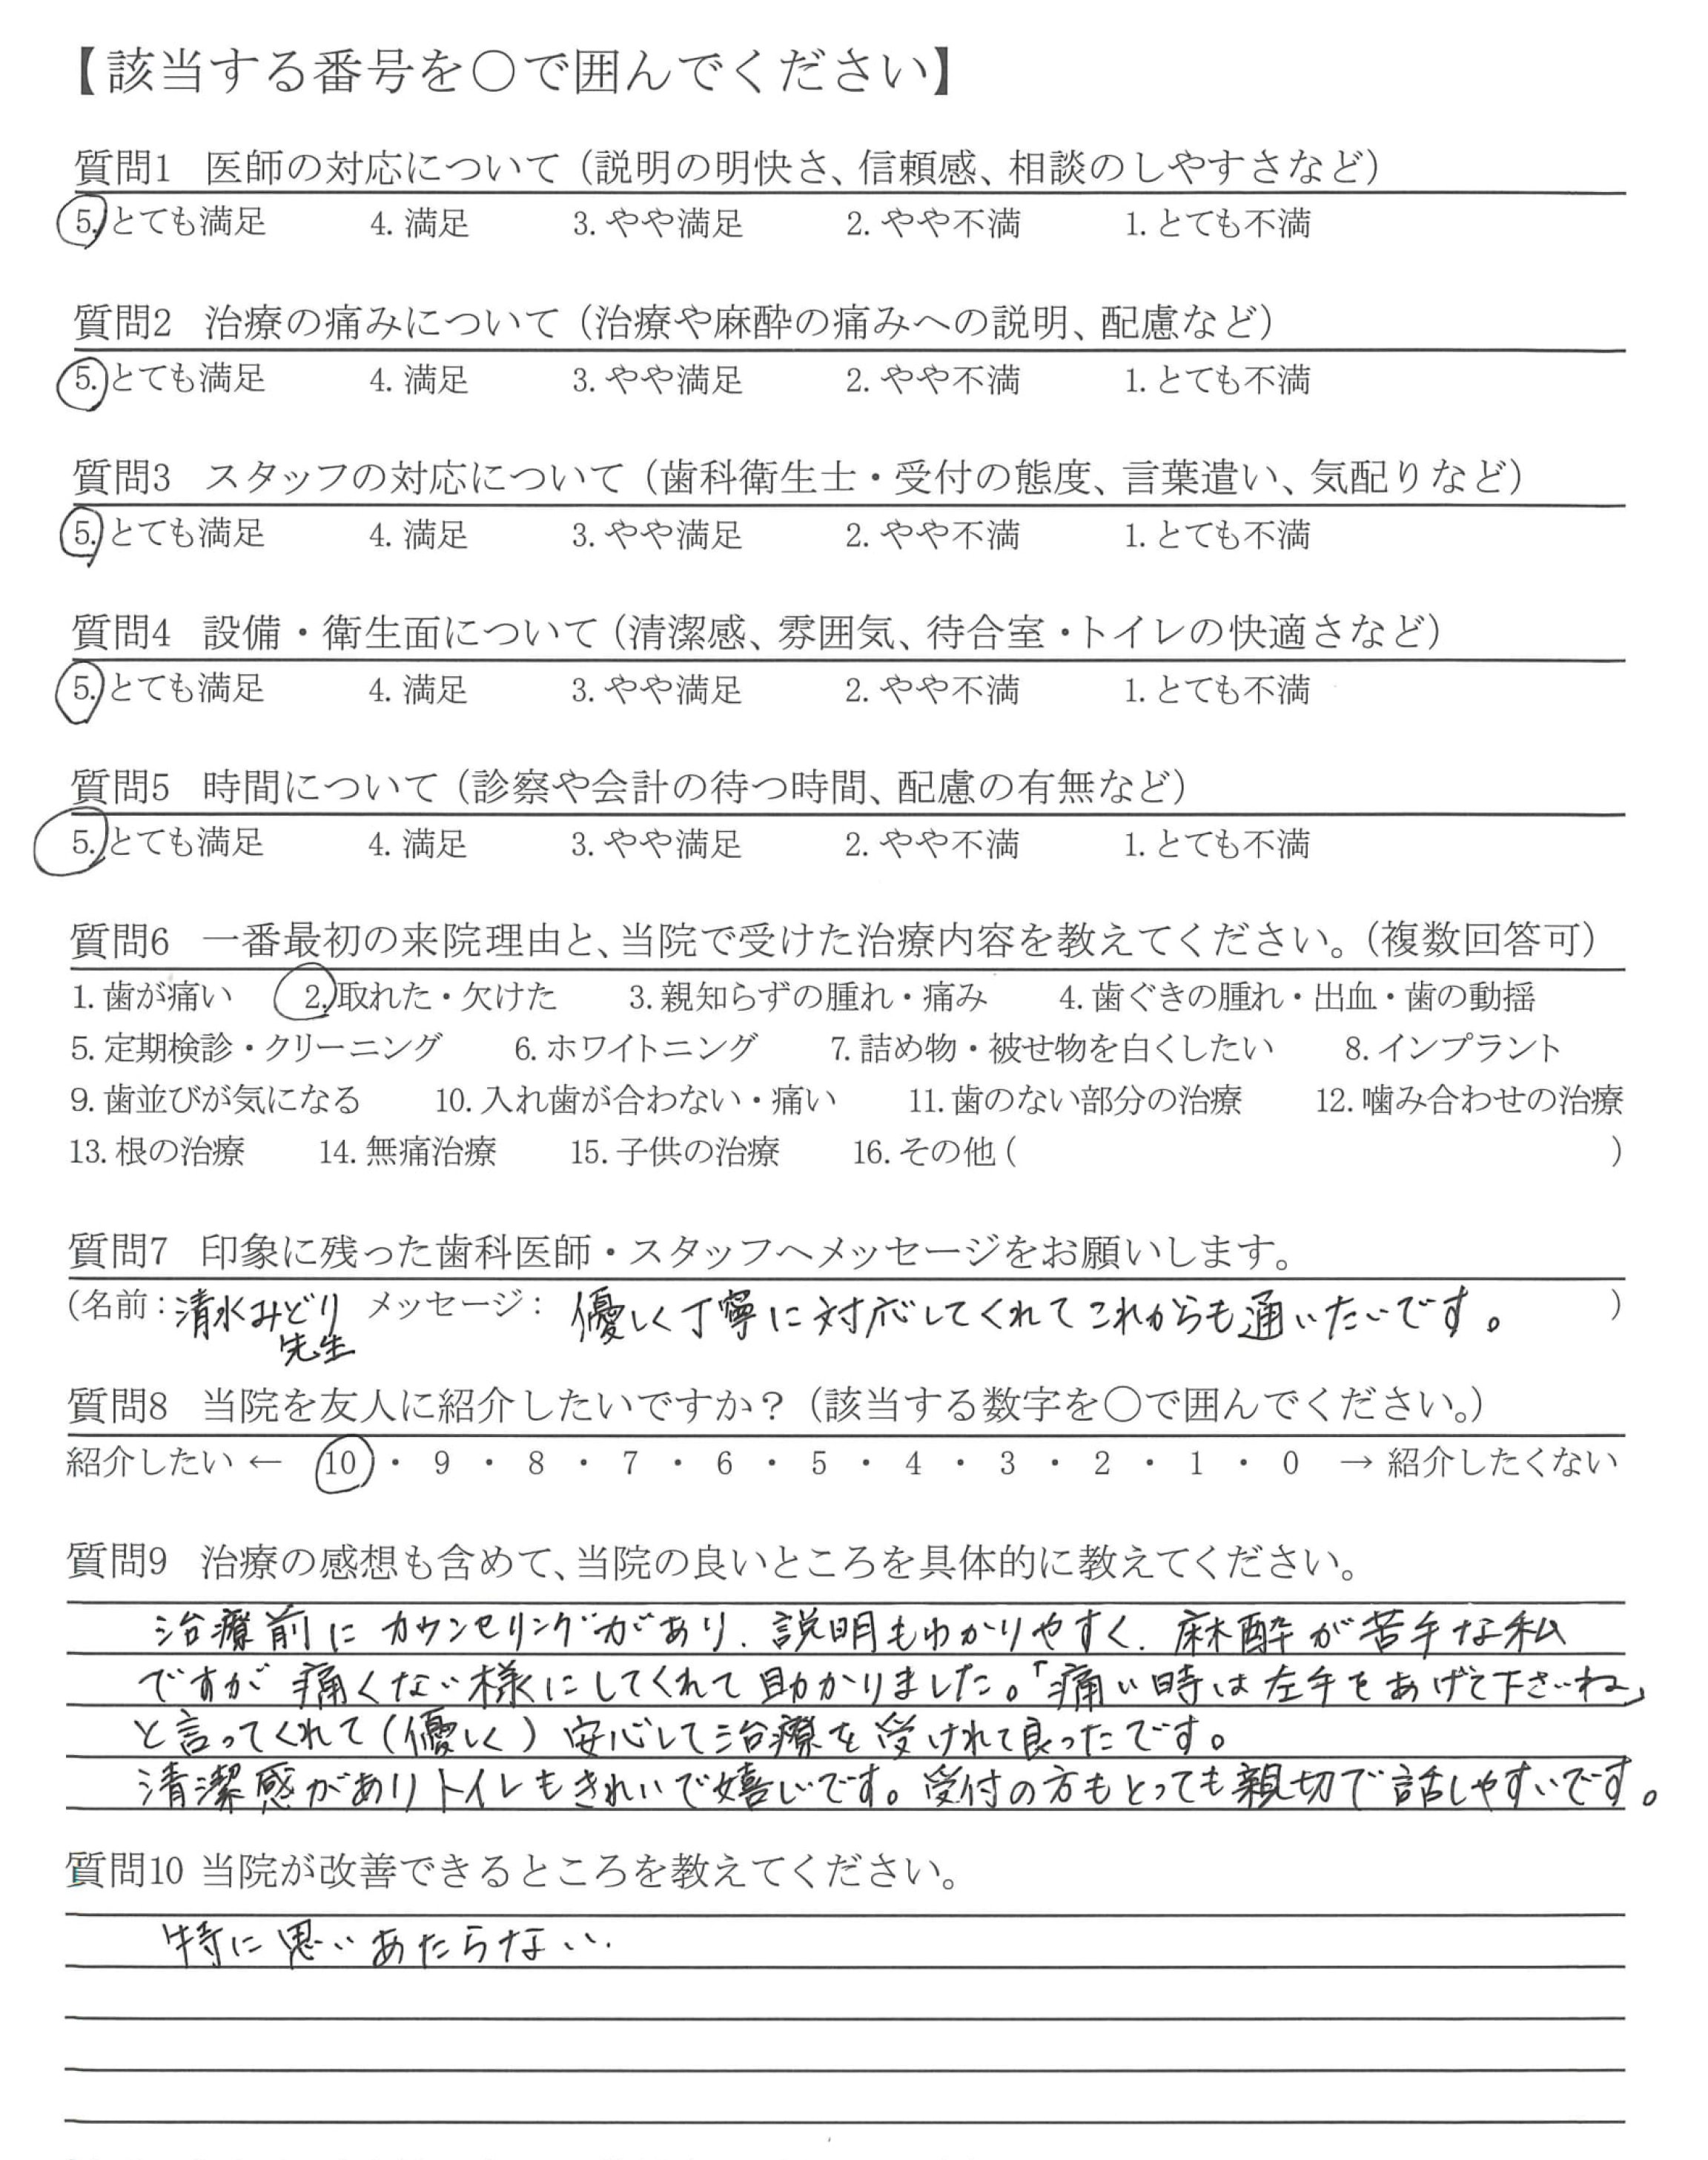 【該当する番号を○で囲んでください】
質問1 医師の対応について（説明の明快さ、信頼感、相談のしやすさなど）
5. とても満足 4. 満足 3. やや満足 2. やや不満 1. とても不満
質問2 治療の痛みについて（治療や麻酔の痛みへの説明、配慮など）
5. とても満足 4. 満足 3. やや満足 2. やや不満 1. とても不満
質問3 スタッフの対応について（歯科衛生士・受付の態度、言葉遣い、気配りなど）
5. とても満足 4. 満足 3. やや満足 2. やや不満 1. とても不満
質問4 設備・衛生面について（清潔感、雰囲気、待合室・トイレの快適さなど）
5. とても満足 4. 満足 3. やや満足 2. やや不満 1. とても不満
質問5 時間について（診察や会計の待つ時間、配慮の有無など）
5. とても満足 4. 満足 3. やや満足 2. やや不満 1. とても不満
質問6 一番最初の来院理由と、当院で受けた治療内容を教えてください。（複数回答可）
1. 歯が痛い 2. 取れた・欠けた 3. 親知らずの腫れ・痛み 4. 歯ぐきの腫れ・出血・歯の動揺
5. 定期検診・クリーニング 6. ホワイトニング 7. 詰め物・被せ物を白くしたい 8. インプラント
9. 歯並びが気になる 10. 入れ歯が合わない・痛い 11. 歯のない部分の治療 12. 噛み合わせの治療
13. 根の治療 14. 無痛治療 15. 子供の治療 16. その他（ ）
質問7 印象に残った歯科医師・スタッフへメッセージをお願いします。
（名前：清水みどり メッセージ： 優しく丁寧に対応してくれてこれからも通いたいです。 ）
先生
質問8 当院を友人に紹介したいですか？（該当する数字を○で囲んでください。）
紹介したい ← 10 ・ 9 ・ 8 ・ 7 ・ 6 ・ 5 ・ 4 ・ 3 ・ 2 ・ 1 ・ 0 → 紹介したくない
質問9 治療の感想も含めて、当院の良いところを具体的に教えてください。
治療前にカウンセリングがあり、説明もわかりやすく、麻酔が苦手な私
ですが痛くない様にしてくれて助かりました。「痛い時は左手をあげて下さいね」
と言ってくれて（優しく）安心して治療を受けれて良ったです。
清潔感がありトイレもきれいで嬉しいです。受付の方もとっても親切で話しやすいです。
質問10 当院が改善できるところを教えてください。
特に思いあたらない.